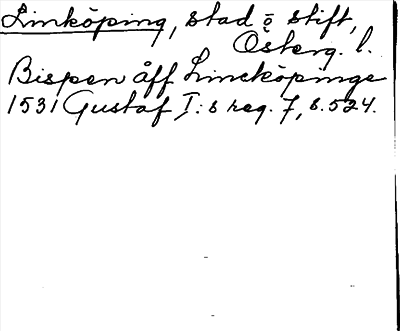 Linköping, stad o stift,
Österg. l.
Bispen åff Lincköpinge
1531 Gustaf I:s reg. 7, s. 524.